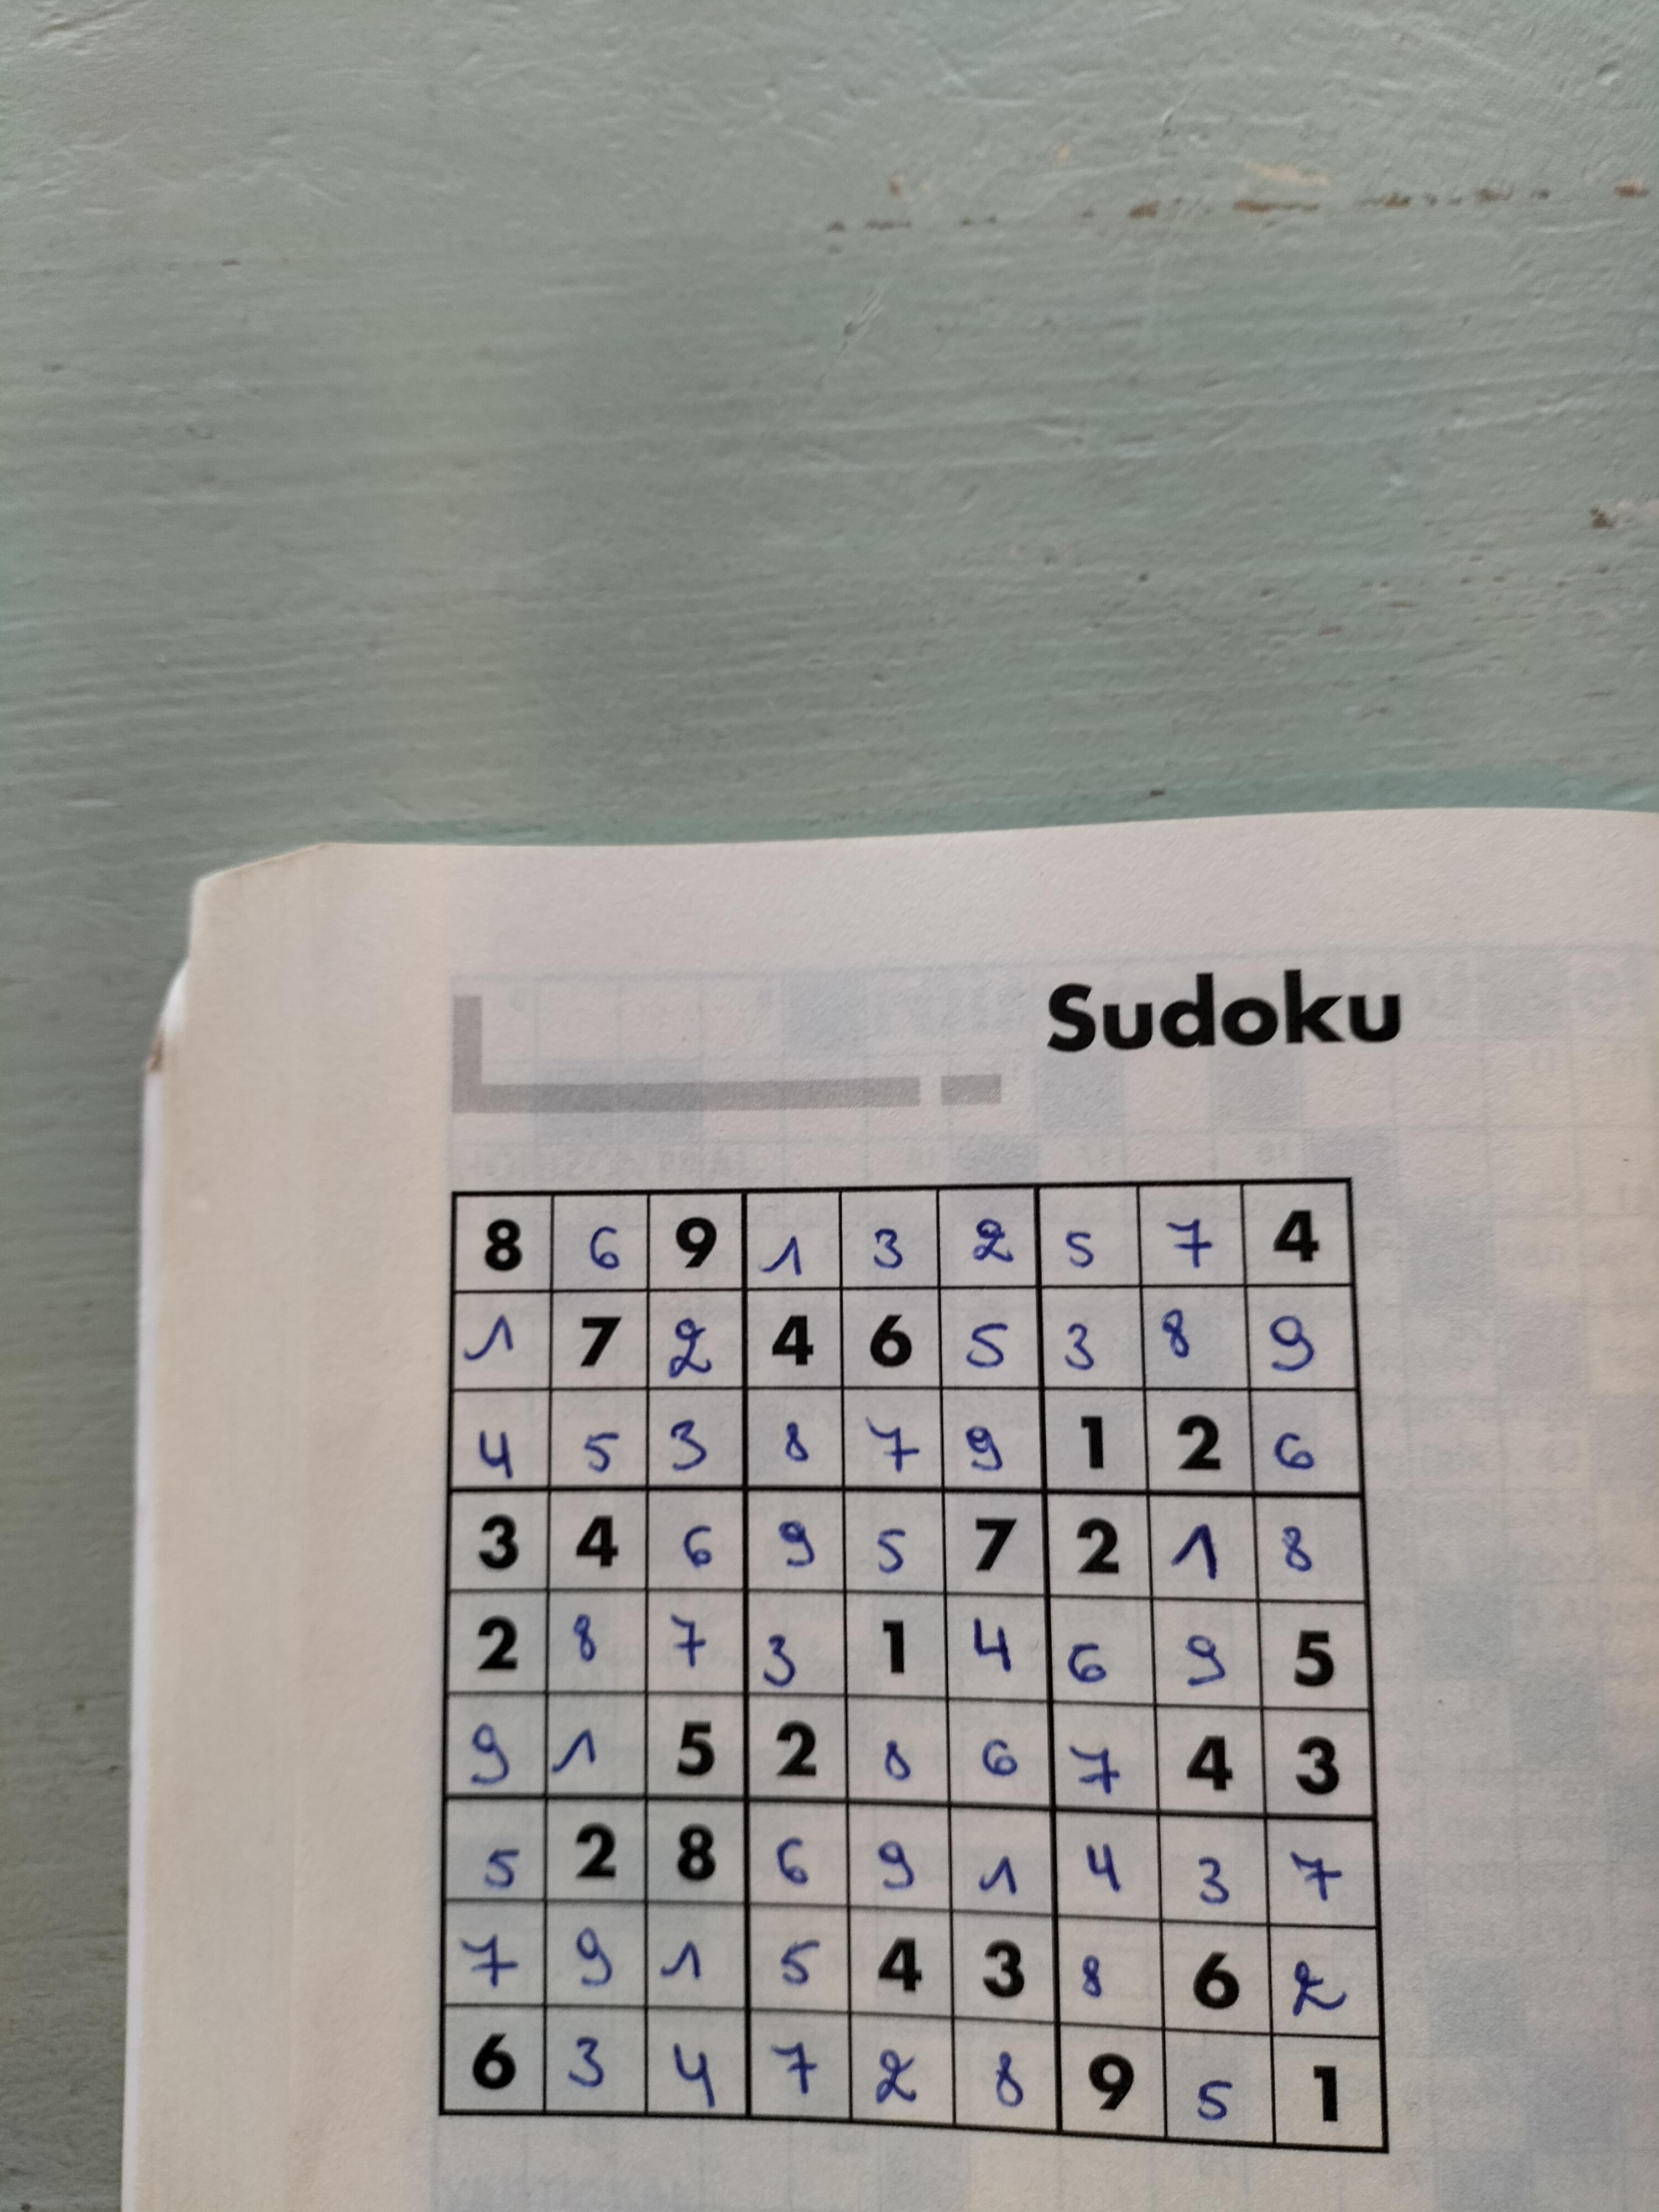 Sudoku
8 6 9 1 3 2 5 7 4
1 7 2 4 6 5 3 8 9
4 5 3 8 7 9 1 2 6
3 4 6 9 5 7 2 1 8
2 8 7 3 1 4 6 9 5
9 1 5 2 8 6 7 4 3
5 2 8 6 9 1 4 3 7
7 9 1 5 4 3 8 6 2
6 3 4 7 2 8 9 5 1